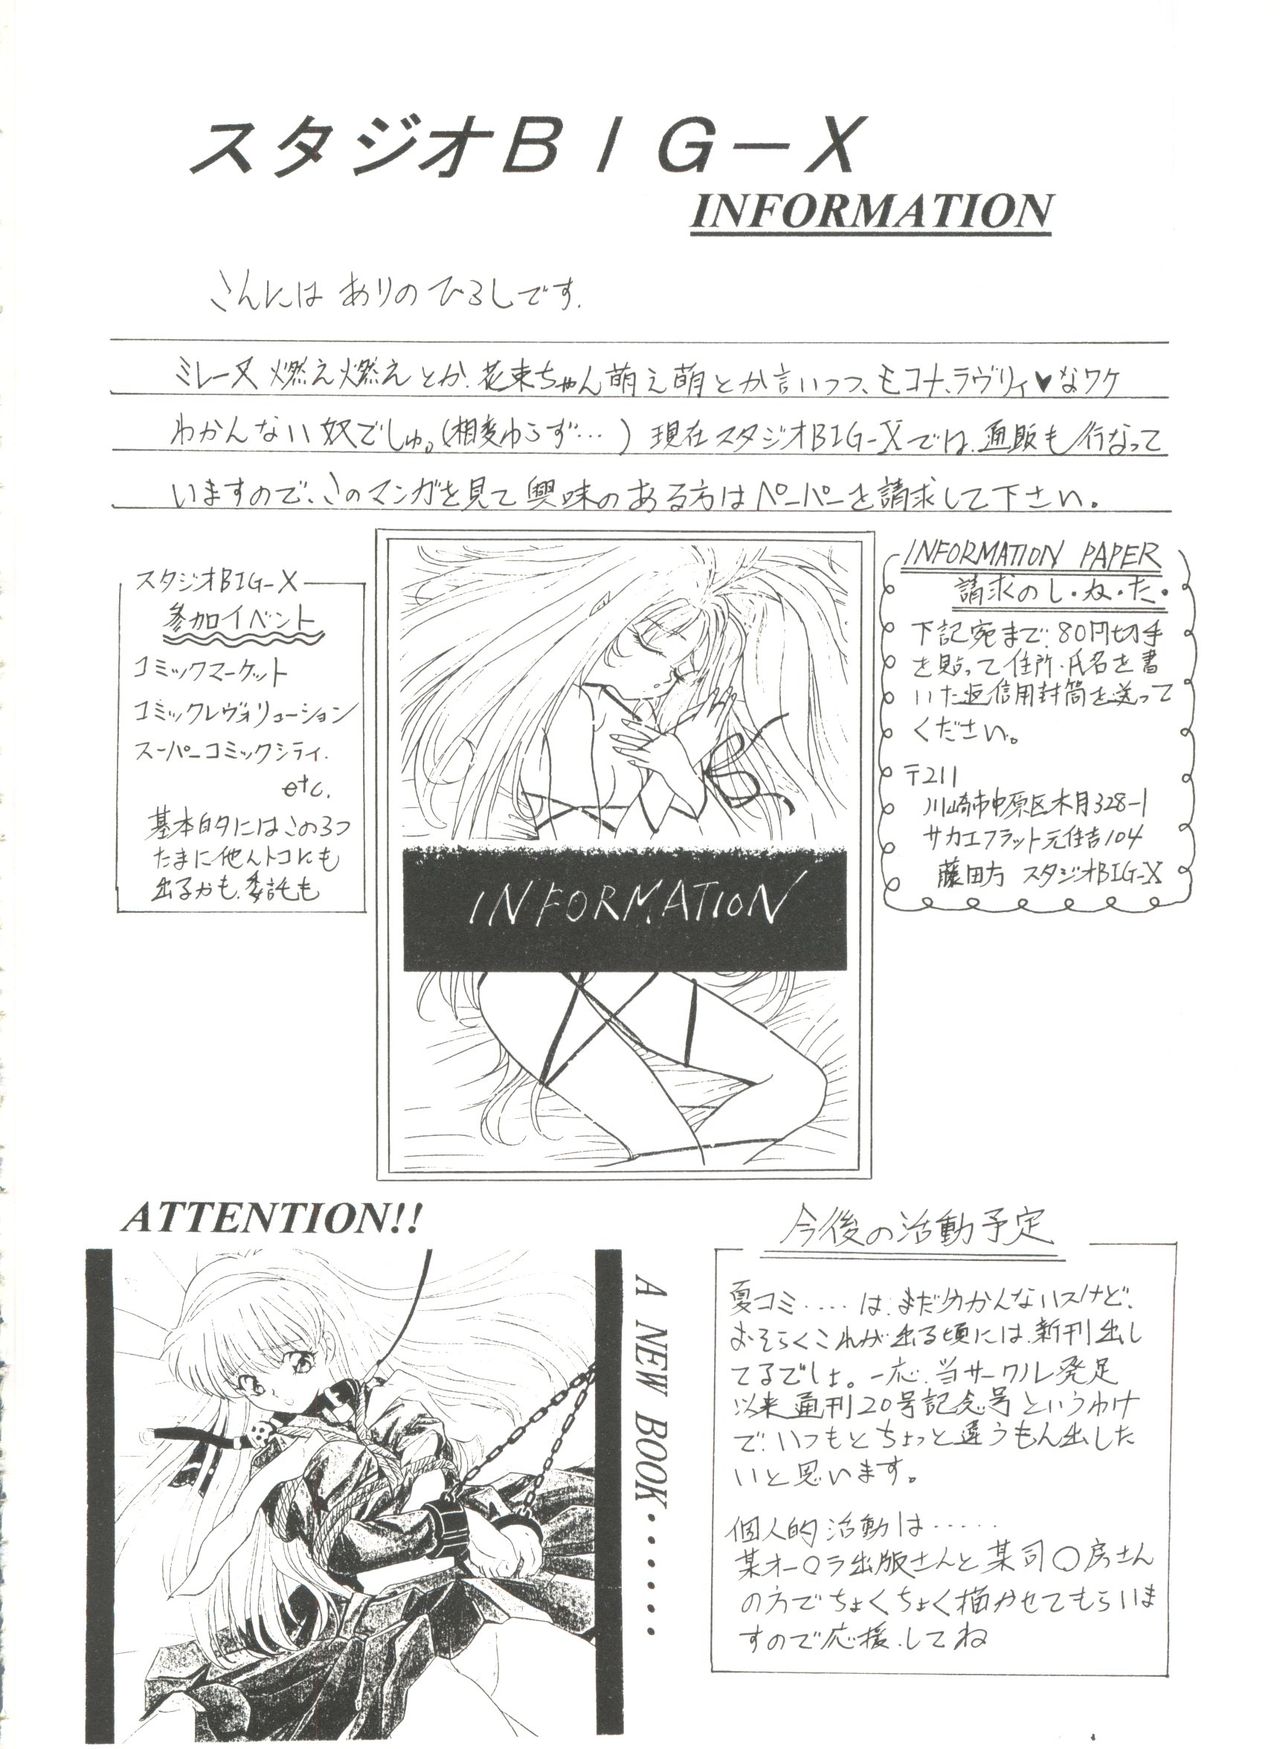 スタジオBIG-X
INFORMATION
こんにちは ありのひろしです.
ミレーヌ燃え燃えとか、花束ちゃん萌え萌とか言いつつ、モコナ、ラヴリィ♥なワケ
わかんない奴でしゅ。(相変わらず…)現在スタジオBIG-Xでは、通販も行なって
いますので、このマンガを見て興味のある方はペーパーを請求して下さい。
スタジオBIG-X
参加イベント
コミックマーケット
コミックレヴォリューション
スーパーコミックシティ.
etc.
基本的にはこの3つ
たまに他んトコにも
出るかも.委託も
INFORMATION
INFORMATION PAPER
請求のし・か・た・
下記宛まで、80円切手
を貼って住所・氏名を書
いた返信用封筒を送って
ください。
〒211
川崎市中原区木月328-1
サカエフラット元住吉104
藤田方 スタジオBIG-X
ATTENTION!!
A NEW BOOK.......
今後の活動予定
夏コミ....は、まだ分かんないスけど、
おそらくこれが出る頃には、新刊出し
てるでしょ。一応、当サークル発足
以来通刊20号記念号というわけ
で、いつもとちょっと違うもん出した
いと思います。
個人的活動は……
某オー○ラ出版さんと某司○房さん
の方でちょくちょく描かせてもらいま
すので応援してね